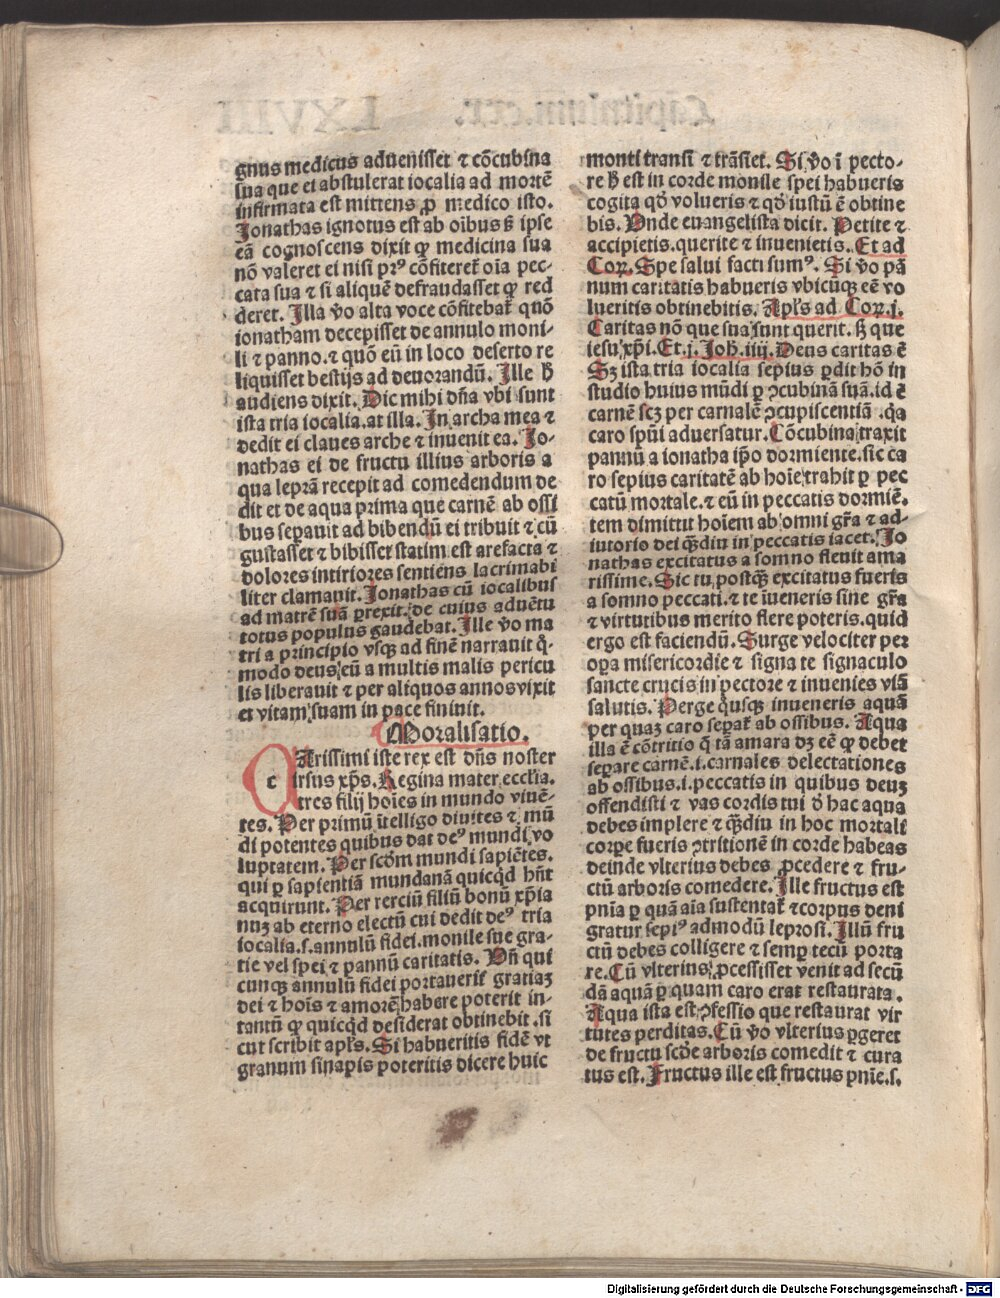 gnus medicus aduenisset ⁊ cōcubina
sua que ei abstulerat iocalia ad mortē
infirmata est mittens ꝓ medico isto.
Jonathas ignotus est ab oībus sꝫ ipse
eā cognoscens dixit ꝙ medicina sua
nō valeret ei nisi pri⁹ cōfiteret̄ oīa pec-
cata sua ⁊ si aliquē defraudasset ꝙ red
deret. Illa ꝟo alta voce cōfitebat̄ quō
ionatham decepisset de annulo moni-
li ⁊ panno. ⁊ quō eū in loco deserto re
liquisset bestijs ad deuorandū. Ille h̄
audiens dixit. Dic mihi dn̄a vbi sunt
ista tria iocalia. at illa. In archa mea ⁊
dedit ei claues arche ⁊ inuenit ea. Jo-
nathas ei de fructu illius arboris a
qua leprā recepit ad comedendum de
dit et de aqua prima que carnē ab ossi
bus seꝑauit ad bibendū ei tribuit ⁊ cū
gustasset ⁊ bibisset statim est arefacta ⁊
dolores intiriores sentiens lacrimabi
liter clamauit. Jonathas cū iocalibus
ad matrē suā ꝑrexit. de cuius aduētu
totus populus gaudebat. Ille ꝟo ma
tri a principio vsqꝫ ad finē narrauit q̇-
modo deus cū a multis malis pericu
lis liberauit ⁊ per aliquos annos vixit
et vitam suam in pace finiuit.
Moralisatio.
cArissimi iste rex est dn̄s noster
iesus xp̄s. Regina mater eccl̄ia.
tres filij hoīes in mundo viuē-
tes. Per primū ītelligo diuites ⁊ mū
di potentes quibus dat de⁹ mundi vo
luptatem. Per scd̄m mundi sapiētes.
qui ꝑ sapientiā mundanā quicq̇d hn̄t
acquirunt. Per rerciū filiū bonū xp̄ia
nuꝫ ab eterno electū cui dedit de⁹ tria
iocalia. s. annulū fidei. monile sue gra-
tie vel spei ⁊ ꝑannū caritatis. Vn̄ qui
cunqꝫ annulū fidei portauerit̄ gratiaꝫ
dei ⁊ hoīs ⁊ amorē habere poterit in-
tantū ꝙ quicq̇d desiderat obtinebit. si
cut scribit apl̄s. Si habueritis fidē vt
granum sinapis poteritis dicere huic
monti transi ⁊ trāsiet. Si ꝟo ī pecto-
re h̄ est in corde monile spei habueris
cogita qd̄ volueris ⁊ qd̄ iustū ē obtine
bis. Vnde euangelista dicit. Petite ⁊
accipietis. querite ⁊ inuenietis. Et ad
Coꝝ. Spe salui facti sum⁹. Si ꝟo pā
num caritatis habueris vbicūqꝫ eē vo
lueritis obtinebitis. Apl̄s ad Coꝝ. j.
Caritas nō que sua sunt querit. sꝫ que
iesu xp̄i. Et. j. Joh̄. iiij. Deus caritas ē
Sꝫ ista tria iocalia sepius ꝑdit hō in
studio huius mūdi ꝑ ꝯcubinā suā. id ē
carnē scꝫ per carnalē ꝯcupiscentiā. q̇a
caro spūi aduersatur. Cōcubina traxit
pannū a ionatha ip̄o dormiente. sic ca
ro sepius caritatē ab hoīe trahit ꝑ pec
catū mortale. ⁊ eū in peccatis dormiē.
tem dimittit hoīem ab omni gr̄a ⁊ ad-
iutorio dei q̄ꝫdiu in peccatis iacet. Jo
nathas excitatus a somno fleuit ama
rissime. Sic tu postq̄ꝫ excitatus fueris
a somno peccati. ⁊ te īueneris sine gr̄a
⁊ virtutibus merito flere poteris. quid
ergo est faciendū. Surge velociter per
oꝑa misericordie ⁊ signa te signaculo
sancte crucis in pectore ⁊ inuenies viā
salutis. Perge q̇usqꝫ inueneris aquā
per quaꝫ caro seꝑat̄ ab ossibus. Aqua
illa ē cōtritio q̄ tā amara dꝫ eē ꝙ debet
seꝑare carnē. i. carnales delectationes
ab ossibus. i. peccatis in quibus deuꝫ
offendisti ⁊ vas cordis tui d̄ hac aqua
debes implere ⁊ q̄ꝫdiu in hoc mortali
corꝑe fueris ꝯtritionē in corde habeas
deinde vlterius debes ꝓcedere ⁊ fru-
ctū arboris comedere. Ille fructus est
pn̄ia ꝑ quā aīa sustentat̄ ⁊ corpus deni
gratur sepi⁹ admodū leprosi. Illū fru
ctū debes colligere ⁊ semꝑ tecū porta
re. Cū vlterius ꝓcessisset venit ad secū
dā aquā ꝑ quam caro erat restaurata.
Aqua ista est ꝯfessio que restaurat vir
tutes perditas. Cū ꝟo vlterius ꝑgeret
de fructu scd̄e arboris comedit ⁊ cura
tus est. Fructus ille est fructus pn̄ie. s.
Digitalisierung gefördert durch die Deutsche Forschungsgemeinschaft - DFG